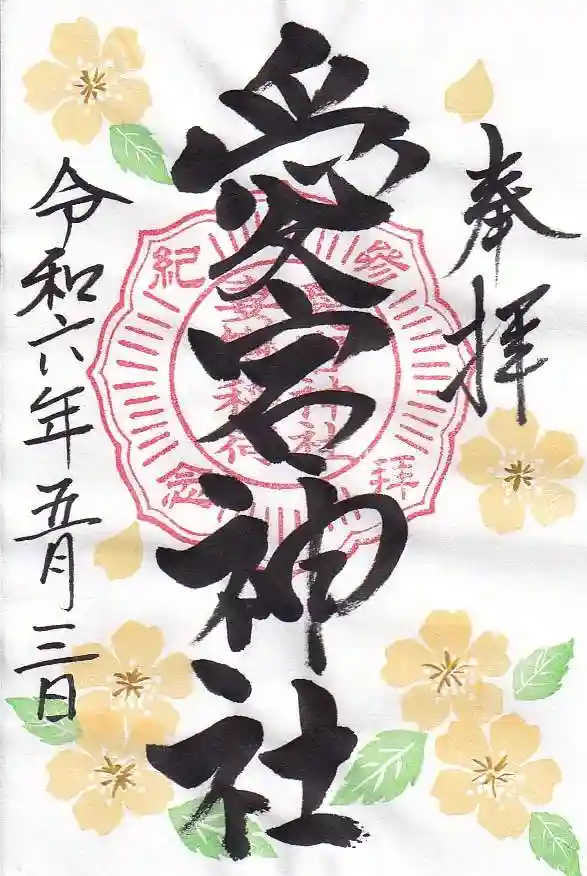 奉拝
愛宕神社
令和六年五月三日
參拝
紀念
神社